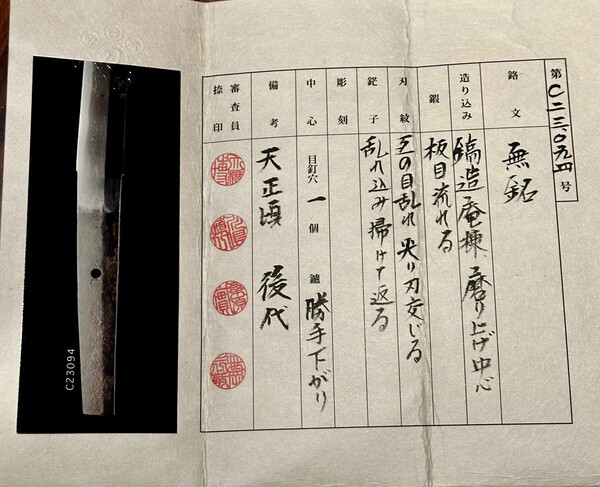 第〇二三〇九四号
銘文 無銘
造り込み 鎬造庵棟、磨り上げ中心
鍛 板目流れる
刃紋 互の目乱れ尖り刃交じる
鋩子 乱れ込み掃けて返る
彫刻
中心 目釘穴 一 個 鑢 勝手下がり
備考 天正頃 後代
審査員
捺印
C23094